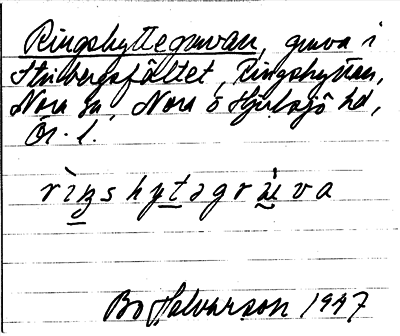 Ringshyttegruvan, gruva i
Stribergsfältet, Ringshyttan,
Nora sn, Nora o Hjulsjö hd,
Ör. l.
rìŋshytəgrùva
Bo Halvarson 1947